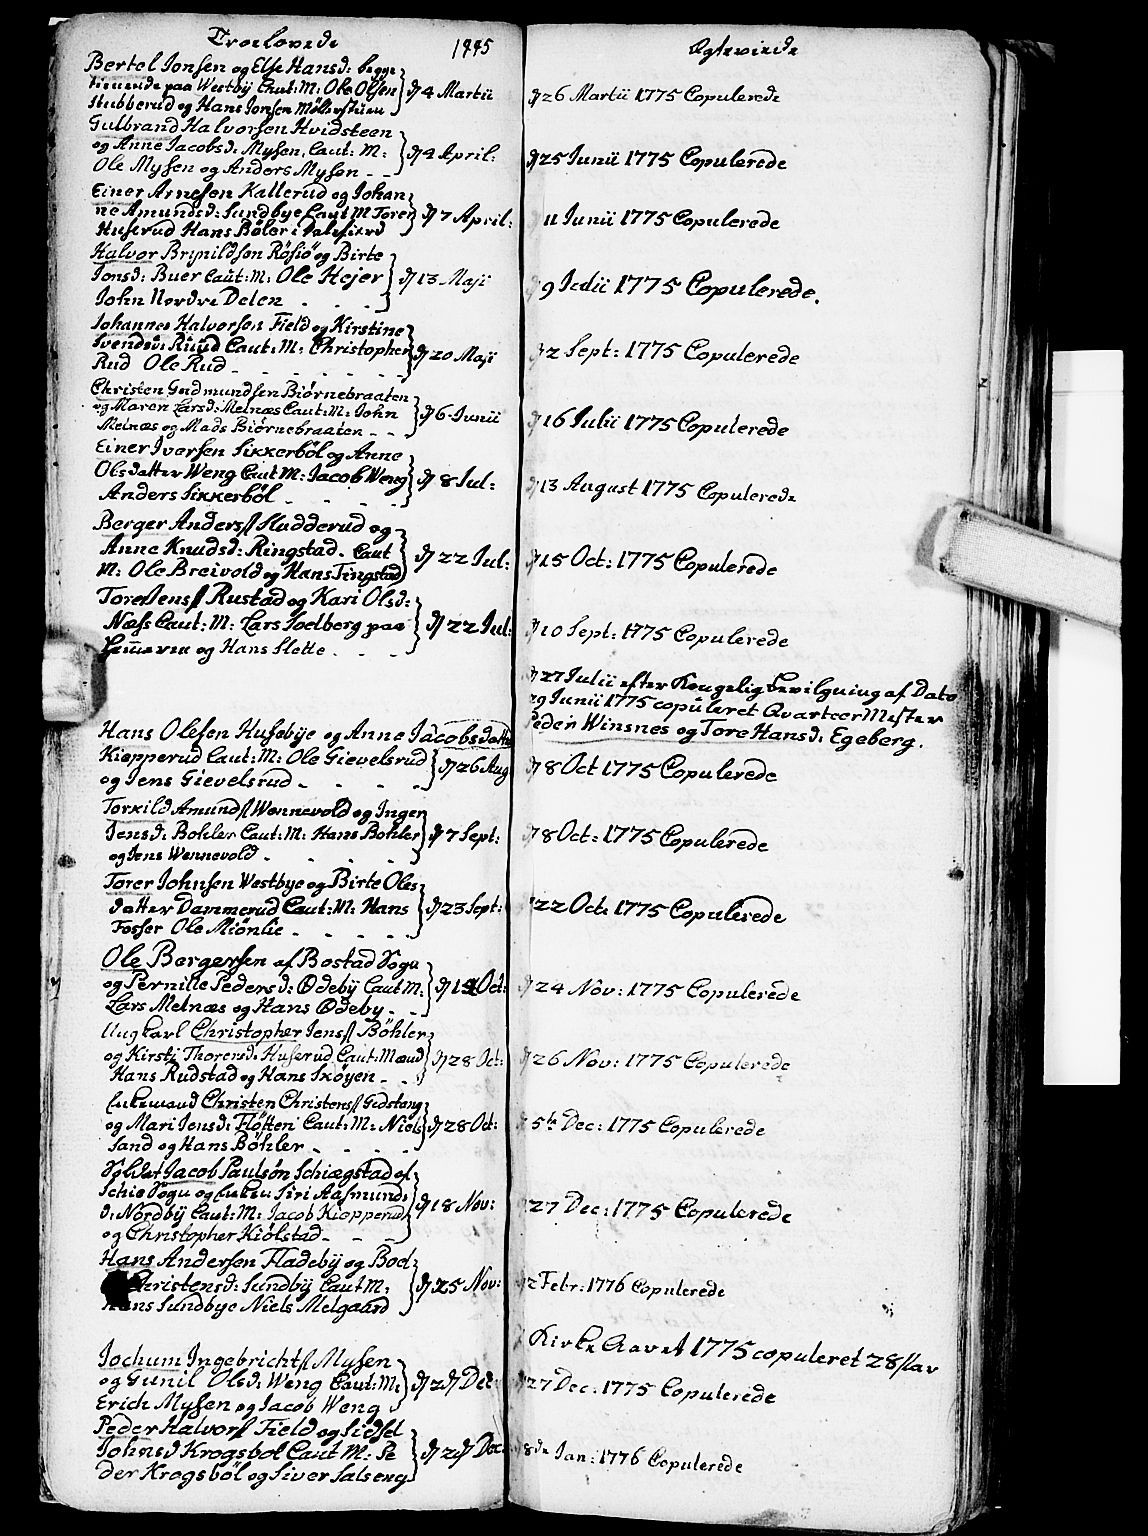 Troelovede 1775
Bertel Jonsen og Else Hansd: begge
tienende paa Westbÿ Caut: M: Ole Olsen
Stubberud og Hans Jonsen Möllerstuen
d 4 Martii
Gulbrand Halvorsen Hvidsteen
og Anne Jacobsd: Mysen, Caut: M:
Ole Mysen og Anders Mysen
d 4 April:
Einer Arnesen Kallerud og Johan
ne Amundsd: Sundbye Caut M Torer
Huserud Hans Böler i
d 7 April:
Halvor Brynildsen Rösiö og Birte
Jonsd: Buer Caut: M: Ole Hejer
John Nordre Delen
d 13 Maji
Johannes Halvorsen Field og Kirstine
Svendsd: Ruud Caut: M: Christopher
Rud Ole Rud
d 20 Maji
Christen Gudmundsen Biørnebraaten
og Maren Larsd: Melnæs Caut: M: John
Melnæs og Mads Biørnebraaten
d 6 Junii
Einer Iversen Sikkerböl og Anne
Olsdatter Weng Caut M: Jacob Weng
Anders Sikkerböl
d 8 Jul:
Berger Anderss Sludderud og
Anne Knudsd: Ringstad. Caut
M: Ole Breivold og Hans Tingstad
d 22 Jul:
Torer Jenss Rustad og Kari Olsd:
Næss Caut: M: Lars Soelberg paa
og Hans Slette
d 22 Jul:
Hans Olesen Husebye og Anne Jacobsdatter
Kiøpperud Caut: M: Ole Gievelsrud
og Jens Gievelsrud
d 26 Aug
Torkild Amunds Wennevold og Inger
Jensd: Bohler Caut: M: Hans Bohler
og Jens Wennevold
d 7 Sept:
Torer Johnsen Westbye og Birte Oles
datter Dammerud Caut: M: Hans
Fosser Ole Miönlie
d 23 Sept:
Ole Bergersen af Bostad Sogn
og Pernille Pedersd: Ødebÿ Caut M:
Lars Melnæs og Hans Ødeby
d 14 Oct:
Ungkarl Christopher Jenss Böhler
og Kirsti Thorersd: Huserud Caut: Mænd
Hans Rudstad og Hans Skoyen
d 28 Oct:
Enkemand Christen Christenss Gidstang
og Mari Jensd: Fløtten Caut: M: Niels
Sand og Hans Böhler
d 28 Oct:
Soldat Jacob Paulsøn Schiægstad af
Schie Sogn og Enken Siri Aasmunds
d: Nordbÿ Caut: M: Jacob Kiøpperud
og Christopher Kiölstad
d 18 Nov:
Hans Andersen Fladebÿ og Bod:
Christensd: Sundbÿ Caut M:
Hans Sundbye Niels Melgaard
d 25 Nov:
Jochum Ingebrichts Mysen
og Gunil Olsd: Weng Caut: M:
Erich Mysen og Jacob Weng
d 2 Dec:
Peder Halvors Field og Sidsel
Johnsd Krogsböl Caut M: Pe
der Krogsböl og Siver Salseng
d 2 Dec
Egteviede
d 26 Martii 1775 Copulerede
d 25 Junii 1775 Copulerede
11 Junii 1775 Copulerede
d 9 Julii 1775 Copulerede.
d 2 Sept: 1775 Copulerede
d 16 Julii 1775 Copulerede
d 13 August 1775 Copulerede
d 15 Oct: 1775 Copulerede
d 10 Sept: 1775 Copulerede
d 27 Julii efter Kongelig bevilgning af Dato
29 Junii 1775 copuleret QvarteerMester
Peder Winsnes og Tore Hansd: Egeberg.
d 8 Oct 1775 Copulerede
d 8 Oct: 1775 Copulerede
22 Oct: 1775 Copulerede
d 24 Nov: 1775 Copulerede
d 26 Nov: 1775 Copulerede
5te Dec: 1775 Copulerede
27 Dec: 1775 Copulerede
d 2 Febr: 1776 Copulerede
I Kirke Aaret 1775 copuleret 28 Par
d 27 Dec: 1775 Copulerede
8de Jan: 1776 Copulerede